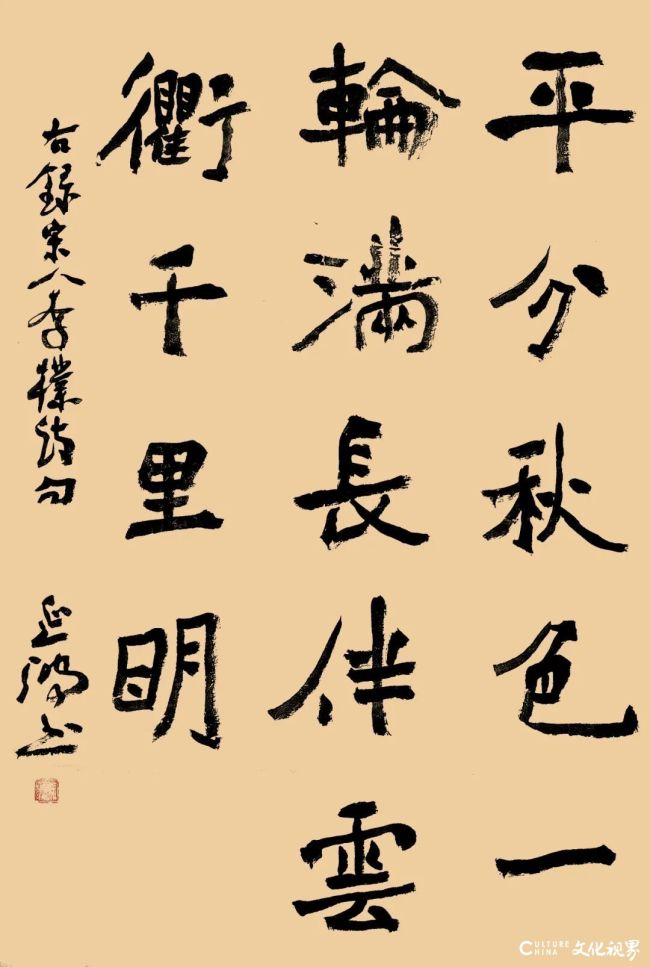 平分秋色一
輪滿長伴雲
衢千里明
右録宋人李樸詩句
延溝书
CULTURE CHINA 文化视界